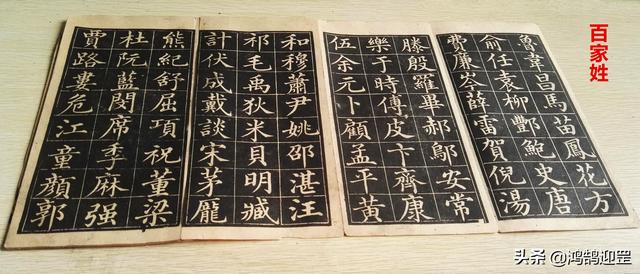 百家姓
魯韋昌馬苗鳳花方
俞任袁柳酆鮑史唐
費廉岑薛雷賀倪湯
滕殷羅畢郝鄔安常
樂于時傅皮卞齊康
伍余元卜顧孟平黃
和穆蕭尹姚邵湛汪
祁毛禹狄米貝明臧
計伏成戴談宋茅龐
熊紀舒屈項祝董梁
杜阮藍閔席季麻强
賈路婁危江童顏郭
头条 @鸿鹄迎罡